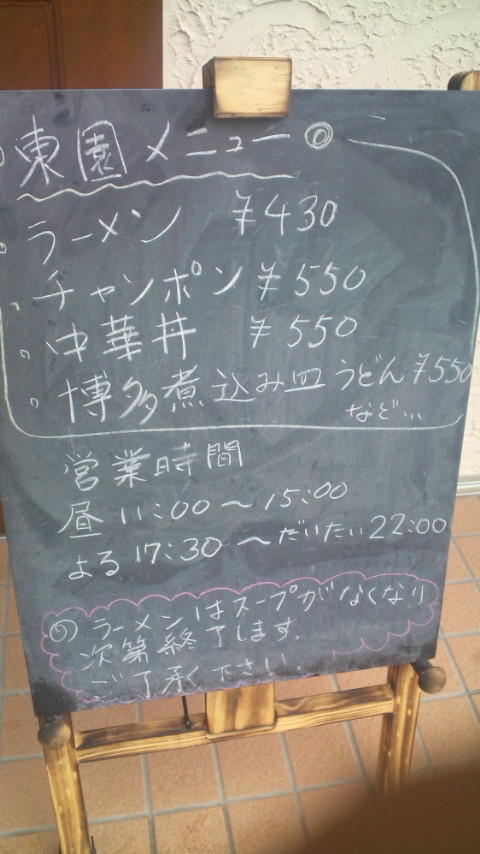 東園メニュー◎
ラーメン ¥430
チャンポン ¥550
中華丼 ¥550
博多煮込み皿うどん ¥550
など…
営業時間
昼 11:00～15:00
よる 17:30～だいたい22:00
◎ ラーメンはスープがなくなり
次第終了します.
ご了承下さい.